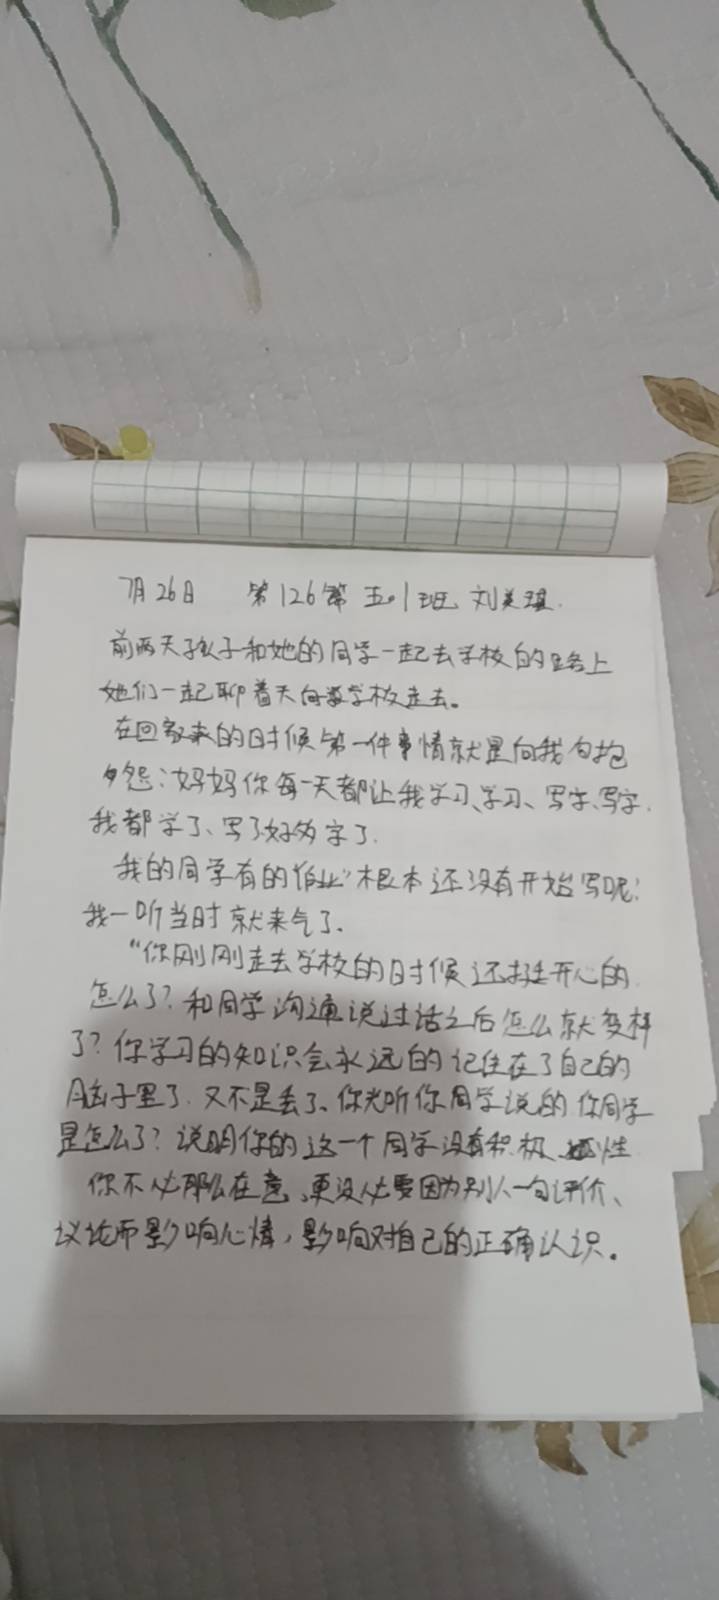 7月26日 第126篇 五.1班 刘美琪.
前两天孩子和她的同学一起去学校的路上
她们一起聊着天向着学校走去。
在回家来的日时候第一件事情就是向我勾抱
怨:妈妈你每一天都让我学习、学习、写字、写字.
我都学了、写了好多字了.
我的同学有的"作业"根本还没有开始写呢!
我一听当时就来气了.
"你刚刚走去学校的时候还挺开心的.
怎么了?和同学沟通说过话之后怎么就变样
了?你学习的知识会永远的记住在了自己的
脑子里了.又不是丢了、你光听你同学说的你同学
是怎么了?说明你的这一个同学没有积极 性.
你不必那么在意、更没必要因为别人一句评价、
议论而影响心情,影响对自己的正确认识。